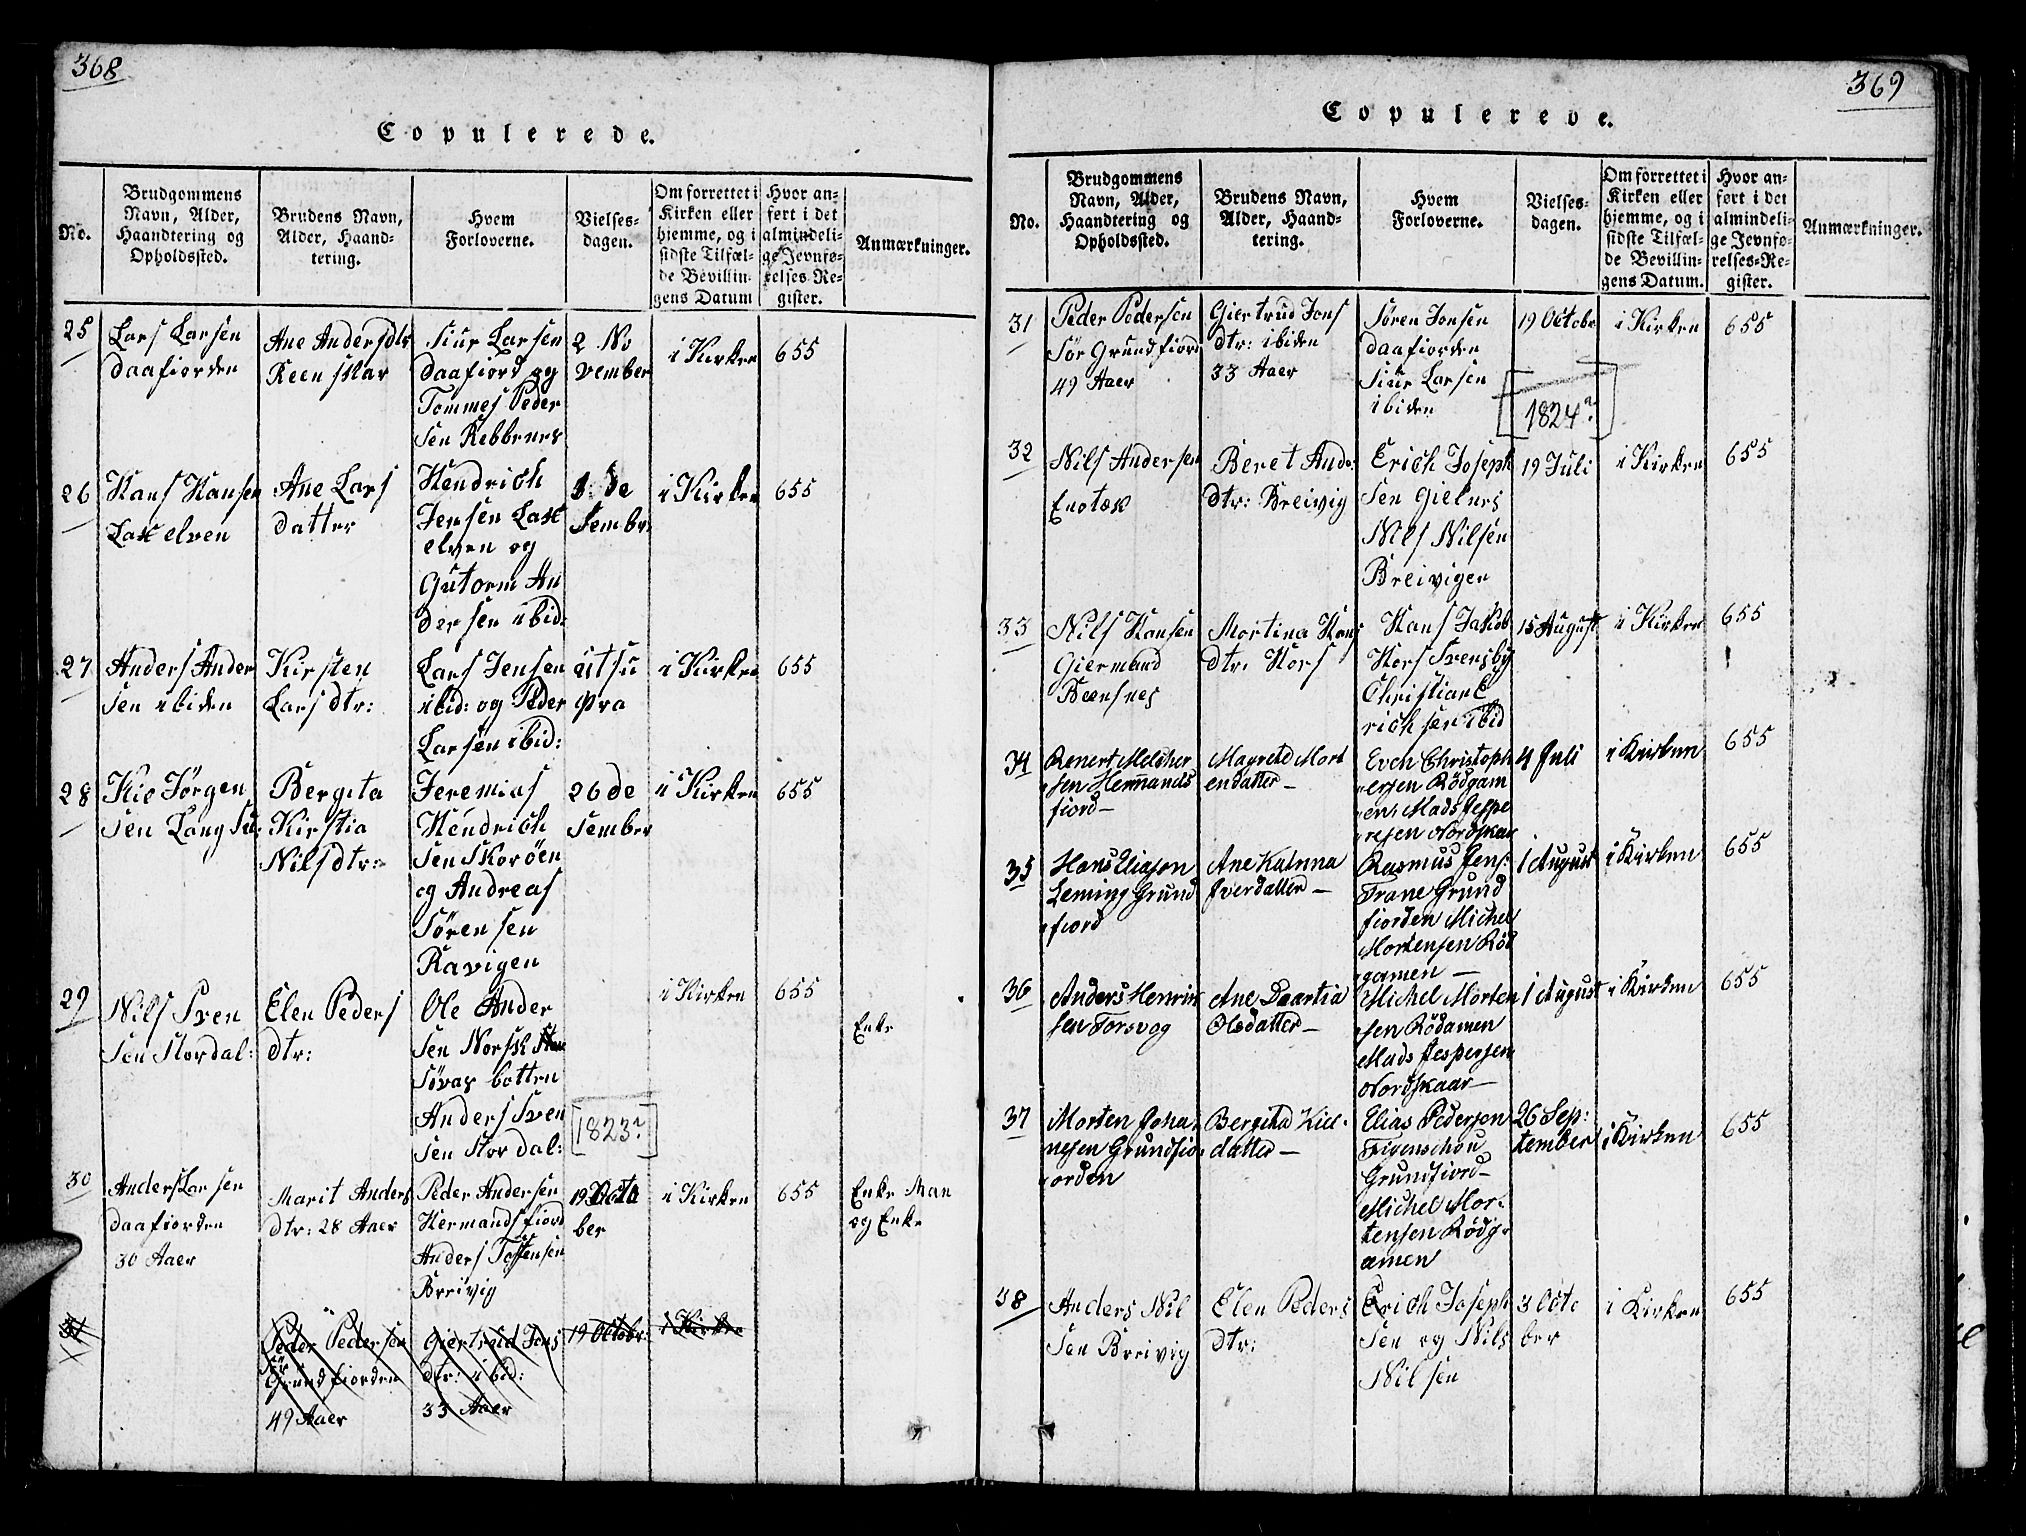 368
Copulerede.
No.
Brudgommens
Navn, Alder,
Haandtering og
Opholdssted.
Brudens Navn,
Alder, Haand-
tering.
Hvem
Forloverne.
Vielses-
dagen.
Om forrettet i
Kirken eller
hjemme, og i
sidste Tilfæl-
de Bevillin-
gens Datum
Hvor an-
ført i det
almindeli-
ge Jevnfø-
relses-Re-
gister.
Anmærkninger.
25
Lars Larsen
Daafiorden
Ane Andersdtr
Reen skar
Siur Larsen
Daafiord og
Tommes Peder
sen Rebbenes
2 No
vember
i Kirken
655
26
Hans Hansen
Lax elven
Ane Lars
datter
Hendrich
Jensen Lax
elven og
Gutorm An
dersen ibid:
1. De
sembr:
i Kirken
655
27
Anders Ander
sen ibiden
Kirsten
Lars dtr:
Lars Jensen
ibid: og Peder
Larsen ibid:
ut su
pra
i Kirken
655
28
Kio Jørgen
sen Lang Su:
Bergita
Kirstia
Nilsdtr:
Jeremias
Hendrich
sen Skorøen
og Andreas
Søren sen
Ravigen
26 de
sember
i Kirken
655
29
Nils Sven
sen Stordal:
Elen Peders
dtr:
Ole Ander
sen Norsk
Søvas botten
Anders Sven
sen Stordal:
[1823?]
i Kirken
655
Enke
30
Anders Larsen
daafiorden
30 Aaer
Marit Anders
dtr: 28 Aaer
Peder Andersen
Hermands fiord
Anders Tostensen
Breivig
19 Octo
ber
i Kirken
655
Enke Man
og Enke
31
Peder Pedersen
Sør
Grundfiorden
49 Aaer
Giertrud Jons
dtr: ibid:
33 Aaer
19 Octobr:
i Kirke
369
Copulerede.
No.
Brudgommens
Navn, Alder,
Haandtering og
Opholdssted.
Brudens Navn,
Alder, Haand-
tering.
Hvem
Forloverne.
Vielses-
dagen.
Om forrettet i
Kirken eller
hjemme, og i
sidste Tilfæl-
de Bevillin-
gens Datum.
Hvor an-
ført i det
almindeli-
ge Jevnfø-
relses-Re-
gister.
Anmærkninger.
31
Peder Pedersen
Sør Grundfiord
49 Aaer
Giertrud Jons
dtr: ibiden
33 Aaer
Søren Jonsen
daafiorden
Siur Larsen
ibiden
19 Octobr
[1824?]
i Kirken
655
32
Nils Andersen
Enotæk
Beret Ands:
dtr: Breivig
Erich Joseph
sen Gielnes
Nils Nilsen
Breivigen
19 Juli
i Kirken
655
33
Nils Hansen
Giermand
Beensnes
Mortina Hans
dtr: Kors
Hans Jakob
Kors Svensby
Christian E
rich sen ibid
15 August
i Kirken
655
34
Renert Melcher
sen Hermands
fiord
Magretd Mort
endatter
Evch Christoph
ersen Rödgam
en, Mads Jespe
rsen Nordskar
4 Juli
i Kirken
655
35
Hans Eliasen
Leming Grund
fiord
Ane Katrina
Iverdatter
Rasmus Jens:
Trane Grund
fiorden Michel
Mortensen Röd
gamen
1 August
i Kirken
655
36
Anders Henrik
sen Torsvog
Ane Daartia
Olsdatter
Michel Morten
sen Rödamen
Mads Jespersen
Nordskaar
1 August
i Kirken
655
37
Morten Joha
nesen Grundfio
orden
Bergita Kiel
datter
Elias Pedersen
Figenschou
Grundfiord
Michel Mor-
tensen Rödg-
amen
26 Sep:
tember
i Kirken
655
38
Anders Nil
sen Breivig
Elen Peders
dtr:
Erich Joseph
sen og Nils
Nilsen
3 Octo
ber
i Kirken
655